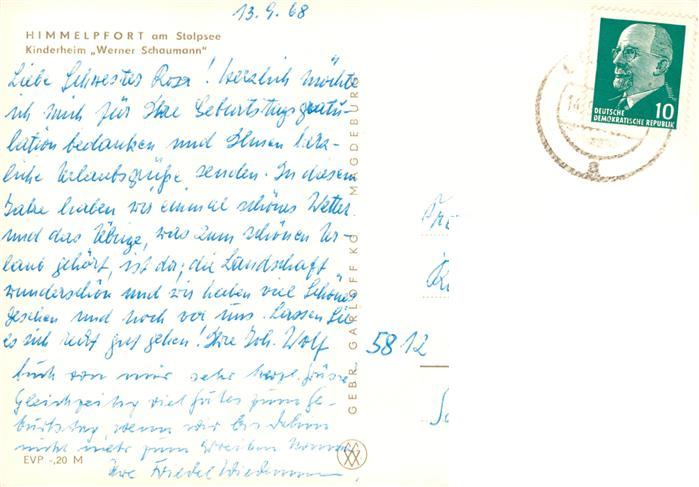 13.9.68
HIMMELPFORT am Stolpsee
Kinderheim „Werner Schaumann"
Liebe Schwester Rosa! Herzlich möchte
ich mich für Ihre Geburtstagsgratu-
lation bedanken und Ihnen herz-
liche Urlaubsgrüße senden. In diesem
Jahre haben wir einmal schönes Wetter
und das Übrige, was zum schönen Ur-
laub gehört, ist da; die Landschaft
wunderschön und wir haben viel Schönes
gesehen und noch vor uns. Lassen Sie
es sich recht gut gehen! Ihre Joh. Wolf
Auch von mir sehr herzl. Grüße
Gleichzeitig viel Gutes zum Ge-
burtstag, wenn wir bis dahin
nicht mehr zum Schreiben kommen
Ihre Friedel Wiedemann
EVP -,20 M
GEBR. GARLOFF KG MAGDEBURG
10
DEUTSCHE
DEMOKRATISCHE REPUBLIK
5812